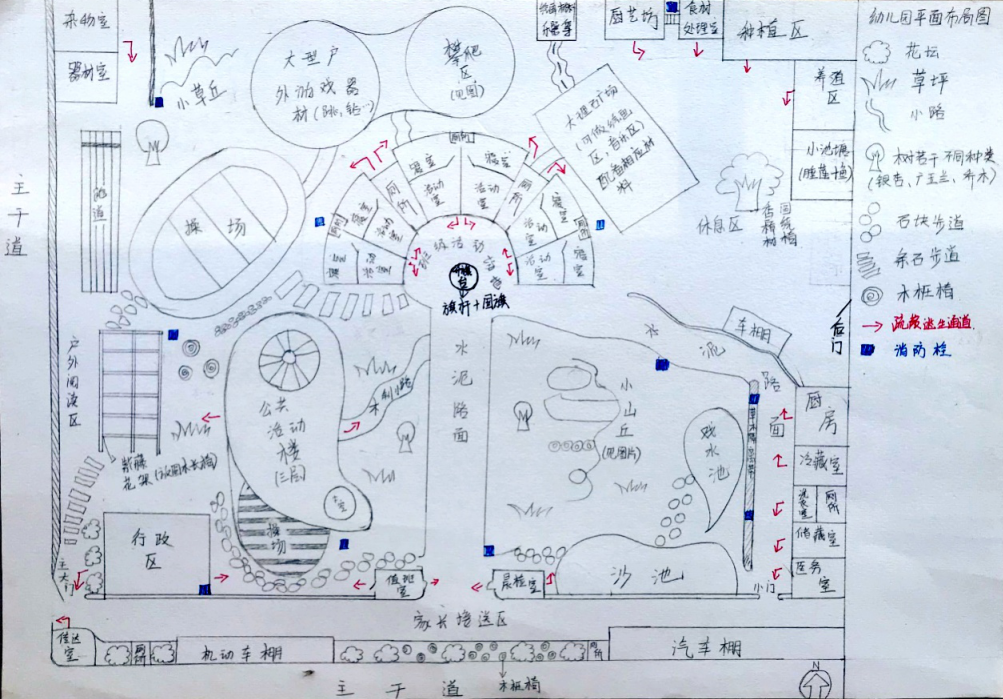 幼儿园平面布局图
花坛
草坪
小路
树若干不同种类
(银杏、广玉兰、乔木)
石块步道
条石步道
木桩椅
疏散逃生通道
消防栓
杂物室
器材室
小草丘
大型户
外游戏器
材(跳,钻…)
攀爬
区
(见图)
厨艺坊
食材
处理室
种植区
养殖
区
小池塘
休息区
大理石广场
配备相应材
料
主
干
道
跑道
操场
寝室
厕所
活动
室
寝室
活动
室
厕所
寝室
活动
室
厕所
活动
室
寝室
寝室
活动室
厕所
旗杆+国旗
户
外
阅
读
区
紫藤
花架
公共
活动
楼
(三层)
木制小路
水
泥
路
面
小
山
丘
(见图片)
戏
水
池
水
泥
路
面
车棚
后门
厨
房
冷藏室
厕所
储藏室
医务
室
小门
行政
区
操
场
主
大
门
值班
室
晨检室
沙池
家长接送区
传达
室
机动车棚
木桩椅
厕所
汽车棚
主干道
N